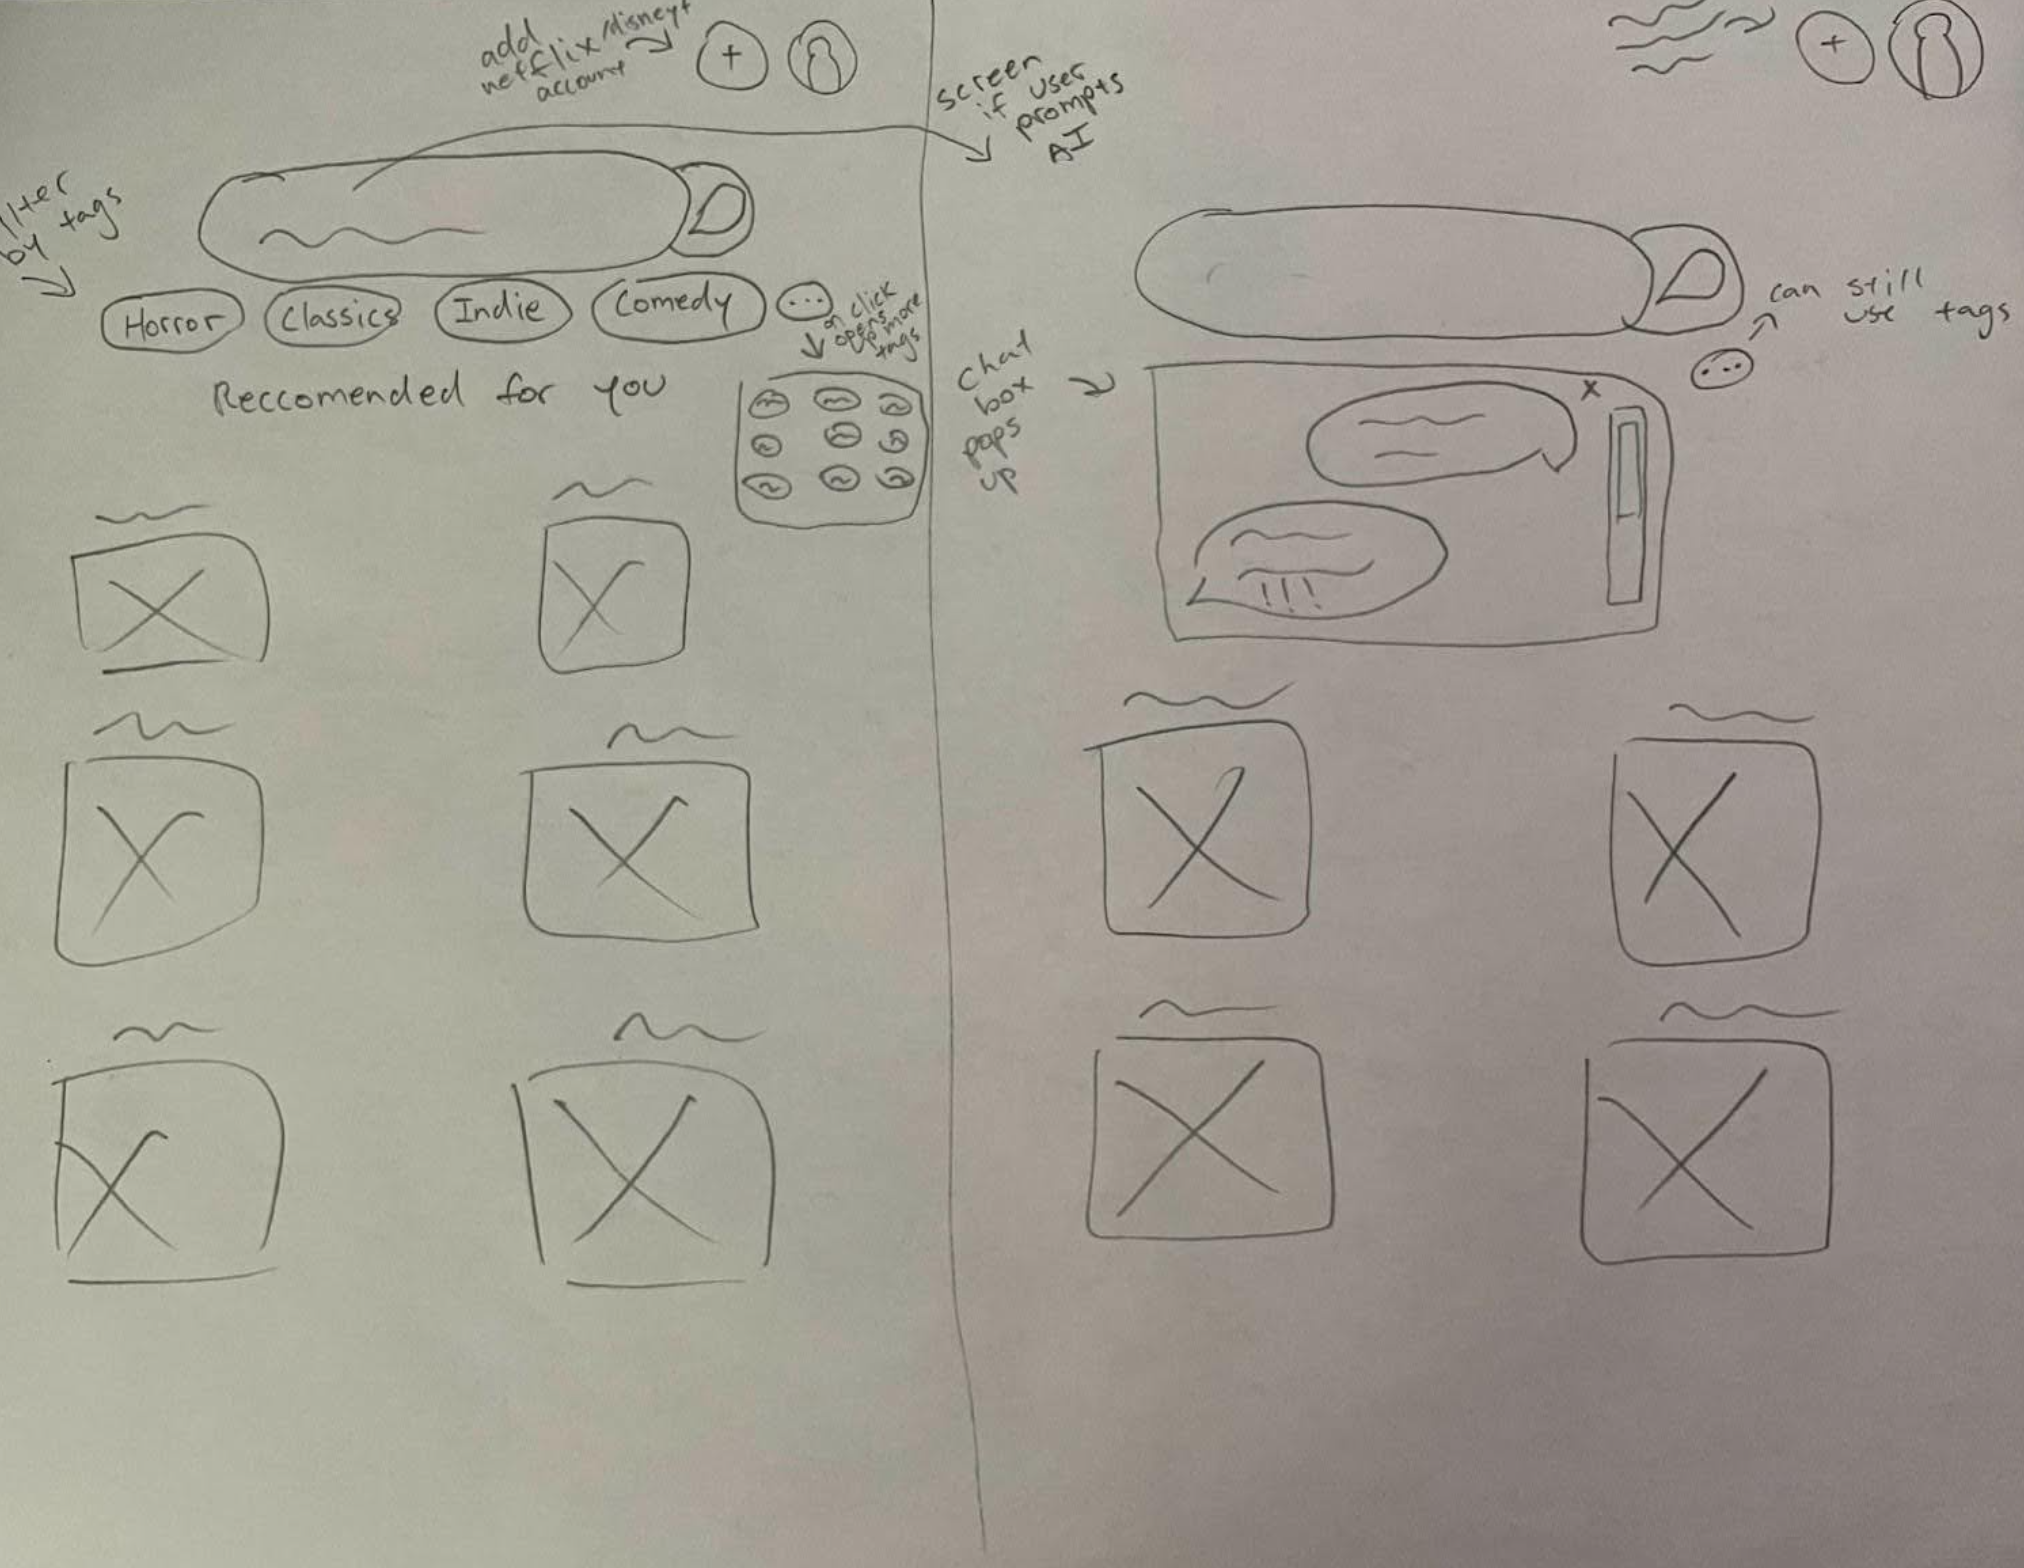 add
netflix/disney+
account
+
filter
by tags
Horror
Classics
Indie
Comedy
...
on click
opens
up more
tags
Reccomended for you
screen
if user
prompts
AI
+
can still
use tags
...
chat
box
pops
up
x
!!!